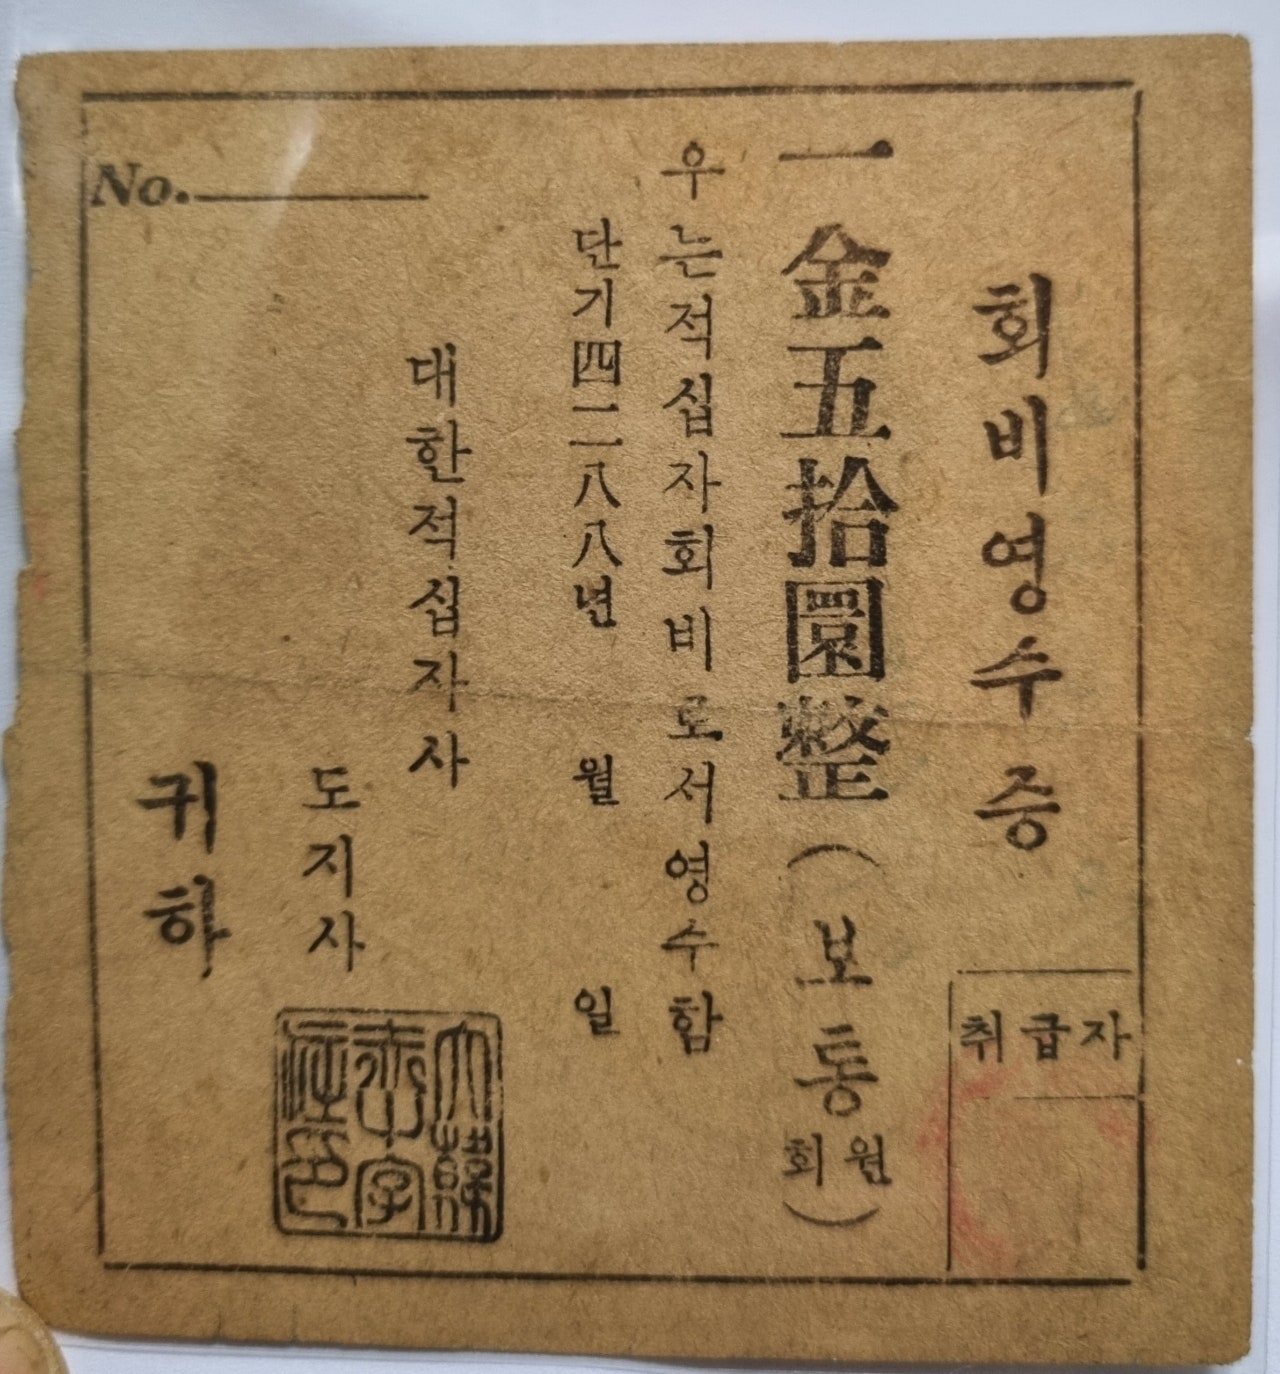 회비영수증
취급자
一金五拾圜整(보통회원)
우는적십자회비로서영수함
단기四二八八년 월 일
대한적십자사
도지사
귀하
No.